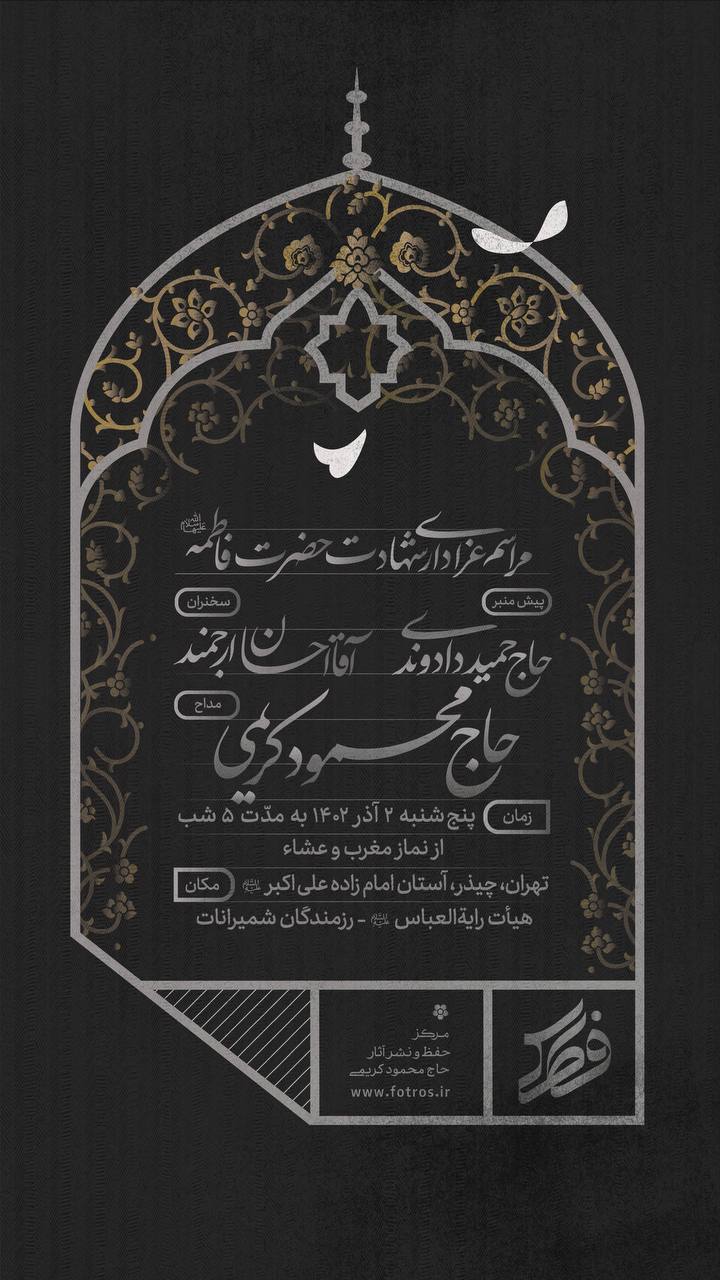 مراسم عزاداری شهادت حضرت فاطمه سلام‌الله‌علیها
پیش منبر
سخنران
حاج حمید دادوندی
آقا احسان ارجمند
مداح
حاج محمود کریمی
زمان
پنج‌شنبه ۲ آذر ۱۴۰۲ به مدّت ۵ شب
از نماز مغرب و عشاء
مکان
تهران، چیذر، آستان امام زاده علی اکبر
هیأت رایةالعباس - رزمندگان شمیرانات
مرکز
حفظ و نشر آثار
حاج محمود کریمی
www.fotros.ir
فطرس